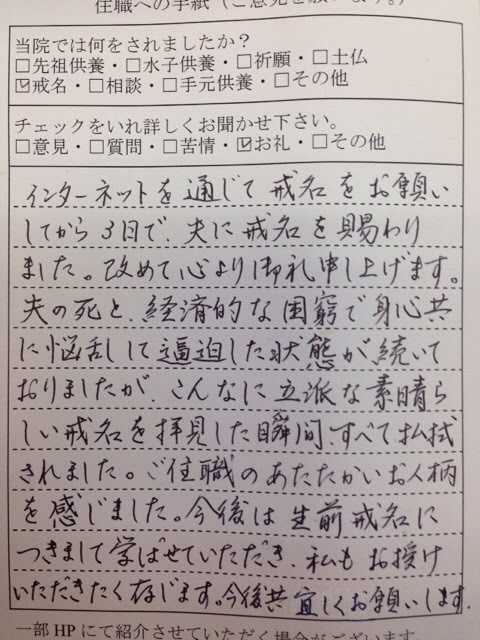 住職への手紙（ご意見を願います。）
当院では何をされましたか？
□先祖供養・□水子供養・□祈願・□土仏
☑戒名・□相談・□手元供養・□その他
チェックをいれ詳しくお聞かせ下さい。
□意見・□質問・□苦情・☑お礼・□その他
インターネットを通じて戒名をお願い
してから3日で、夫に戒名を賜わり
ました。改めて心より御礼申し上げます。
夫の死と、経済的な困窮で身心共
に悩乱して逼迫した状態が続いて
おりましたが、こんなに立派な素晴ら
しい戒名を拝見した瞬間、すべて払拭
されました。ご住職のあたたかいお人柄
を感じました。今後は生前戒名に
つきまして学ばせていただき、私もお授け
いただきたく存じます。今後共宜しくお願いします.
一部HPにて紹介させていただく場合がございます